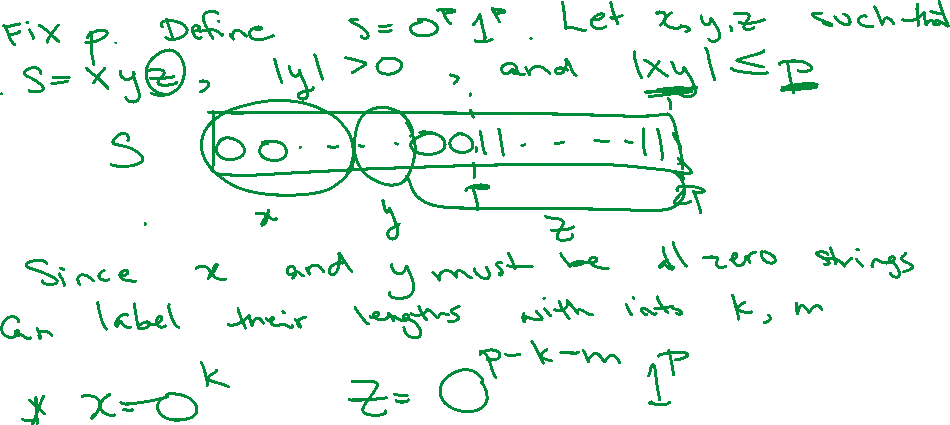 Fix p. Define S = 0^p 1^p. Let x, y, z such that
S = x y z, |y| > 0, and |xy| ≤ p
S 0 0 . - - - 0 0 1 1 . - - - 1 1
p 2p
x y z
Since x and y must be all zero strings
Can label their lengths with ints k, m
x = 0^k z = 0^{p-k-m} 1^p